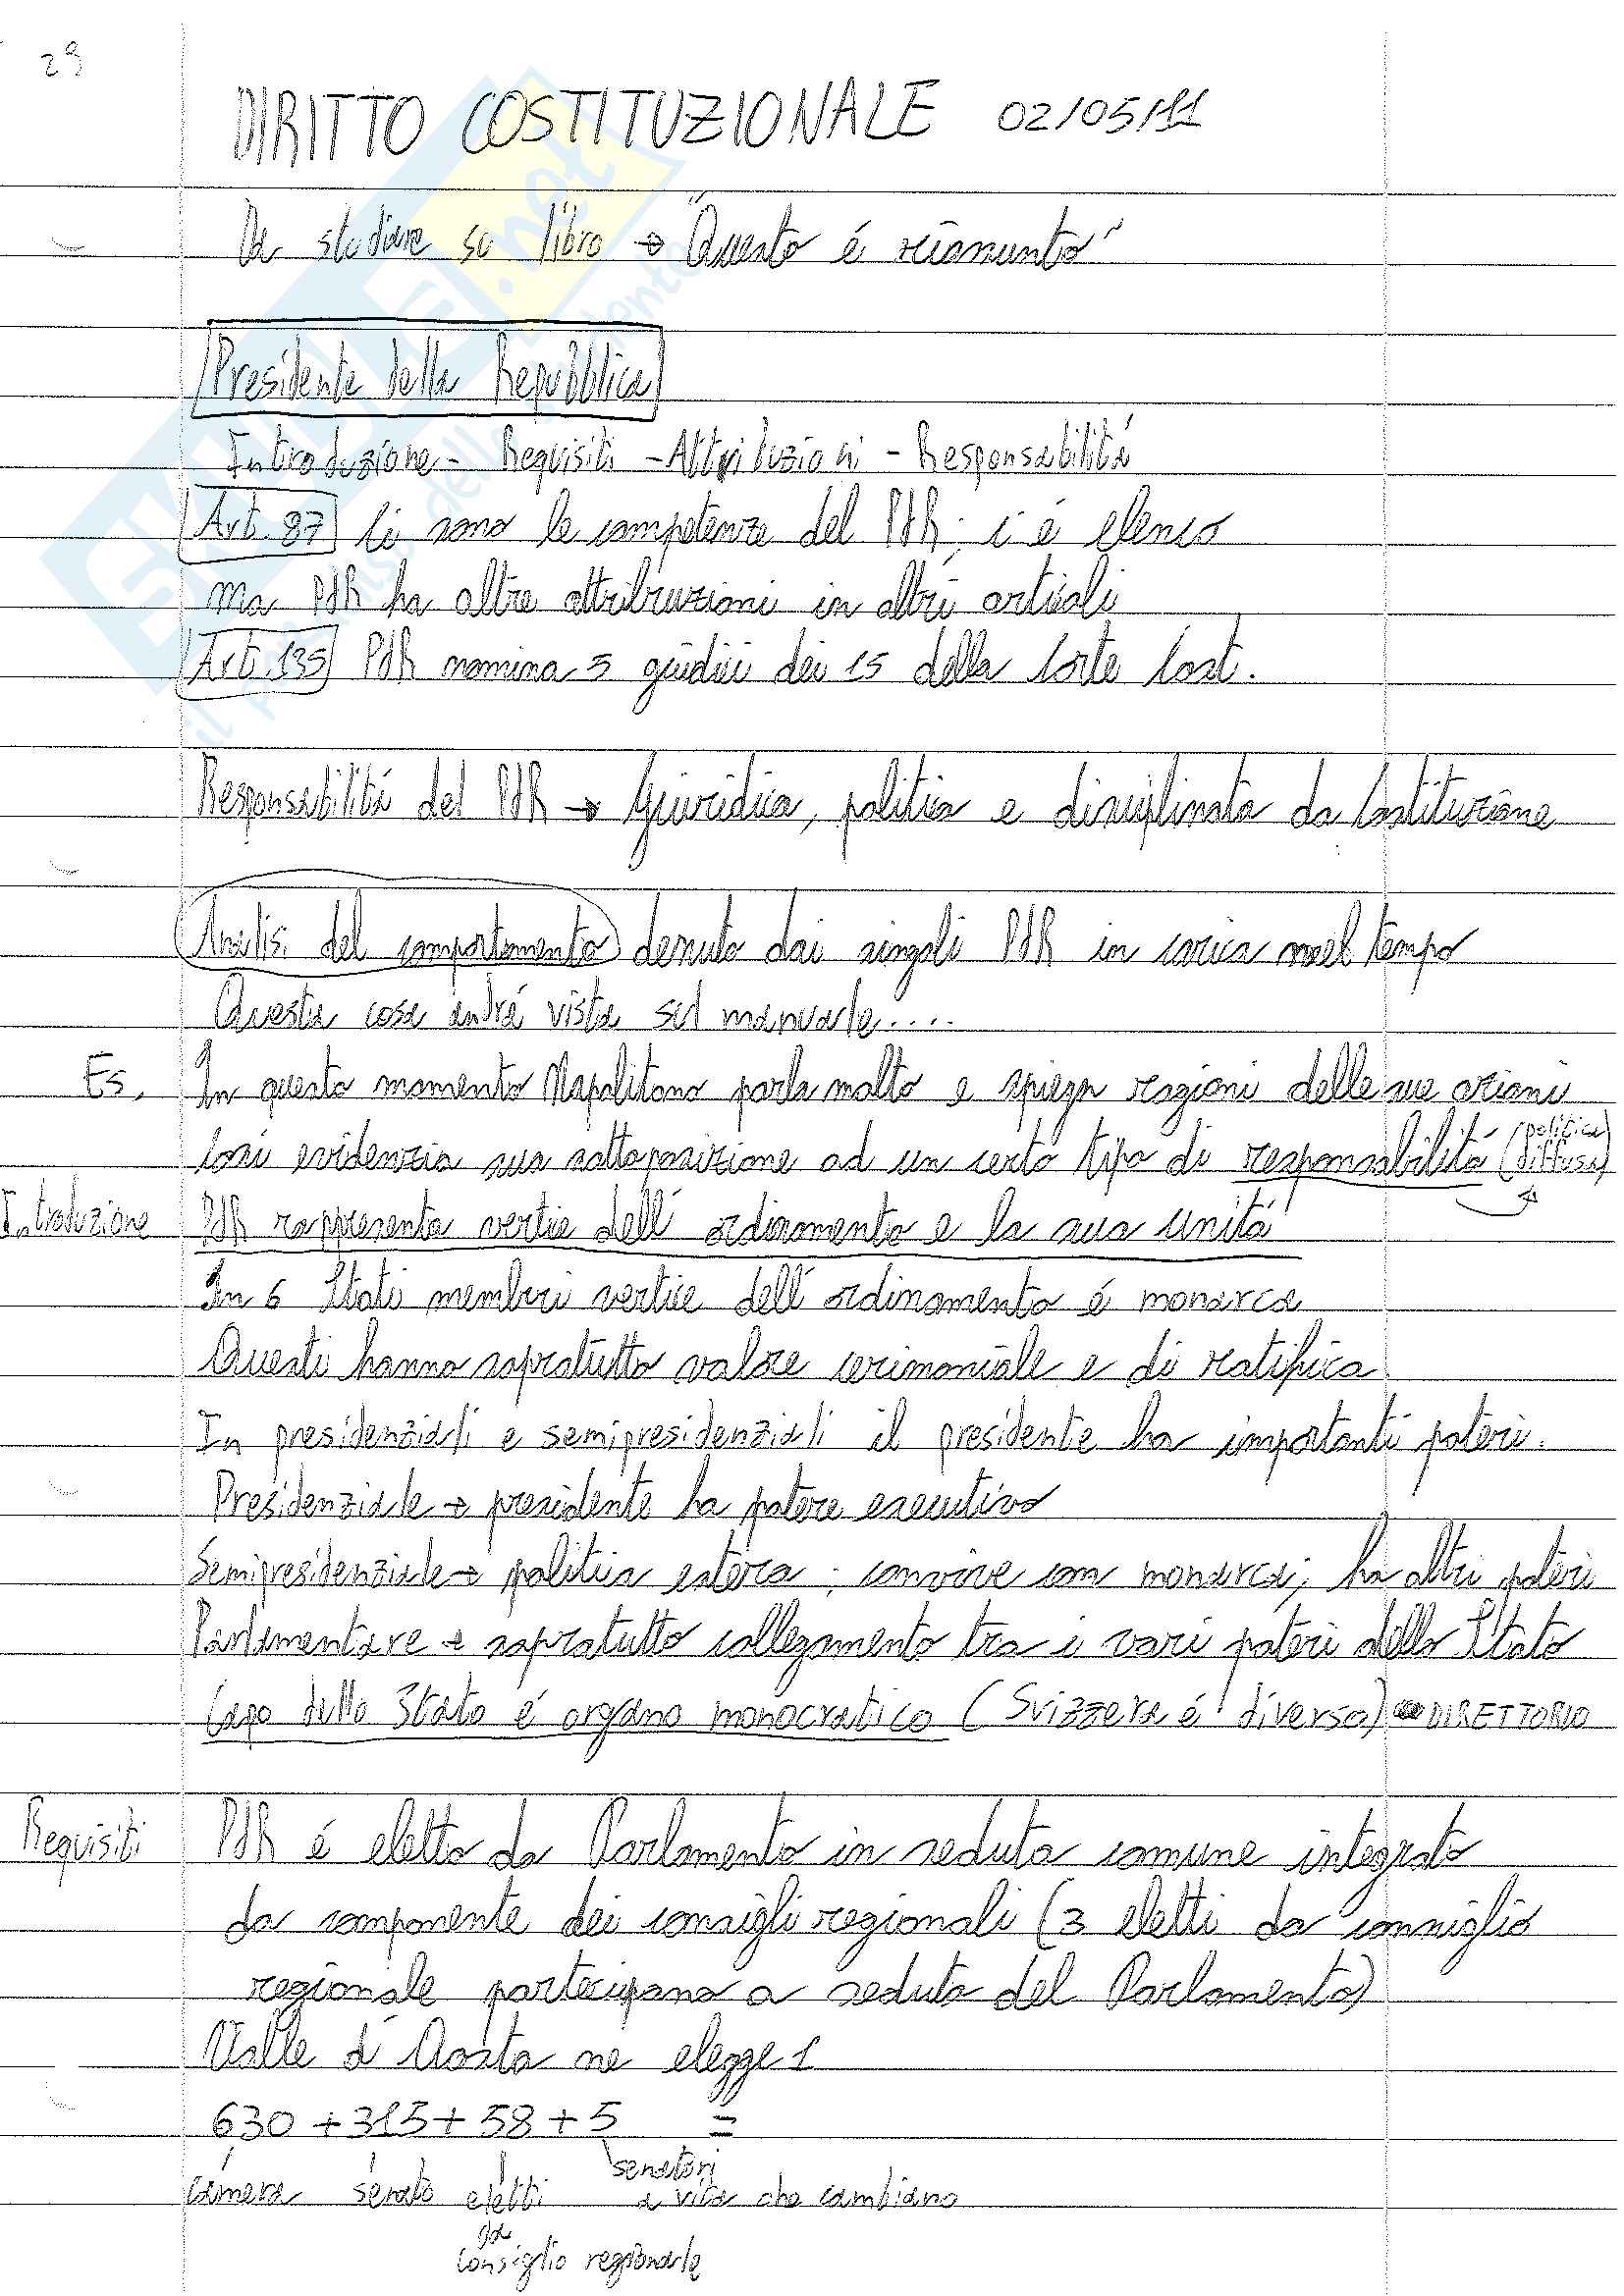 29
DIRITTO COSTITUZIONALE 02/05/11
Da studiare su libro → "Questo è riassunto"
Presidente della Repubblica
Introduzione - Requisiti - Attribuzioni - Responsabilità
Art. 87 Ci sono le competenze del PdR; c'è elenco
Ma PdR ha altre attribuzioni in altri articoli
Art. 135 PdR nomina 5 giudici dei 15 della Corte Cost.
Responsabilità del PdR → Giuridica, politica e disciplinata da Costituzione
Analisi del comportamento tenuto dai singoli PdR in carica nel tempo
Questa cosa andrà vista sul manuale....
Es. In questo momento Napolitano parla molto e spiega ragioni delle sue azioni
Così evidenzia sua sottoposizione ad un certo tipo di responsabilità (politica diffusa)
Introduzione PdR rappresenta vertice dell'ordinamento e la sua unità
In 6 Stati membri vertice dell'ordinamento è monarca
Questi hanno sopratutto valore cerimoniale e di ratifica
In presidenziali e semipresidenziali il presidente ha importanti poteri.
Presidenziale → presidente ha potere esecutivo
Semipresidenziale → politica estera; convive con monarca; ha altri poteri
Parlamentare → sopratutto collegamento tra i vari poteri dello Stato
Capo dello Stato è organo monocratico (Svizzera è diversa) DIRETTORIO
Requisiti PdR è eletto da Parlamento in seduta comune integrato
da componente dei consigli regionali (3 eletti da consiglio
regionale partecipano a seduta del Parlamento)
Valle d'Aosta ne elegge 1
630 + 315 + 58 + 5 =
camera senato eletti da consiglio regionale senatori a vita che cambiano
SKUOLA.net
il paradiso dello studente